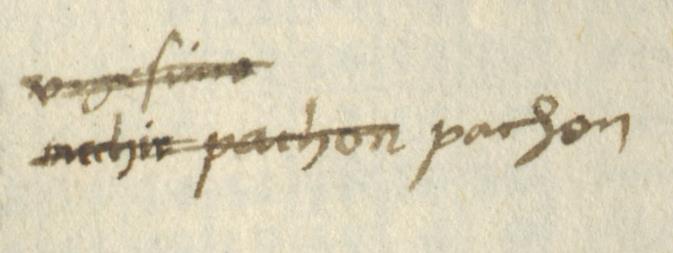 vigesimo
mechir pachon pachon